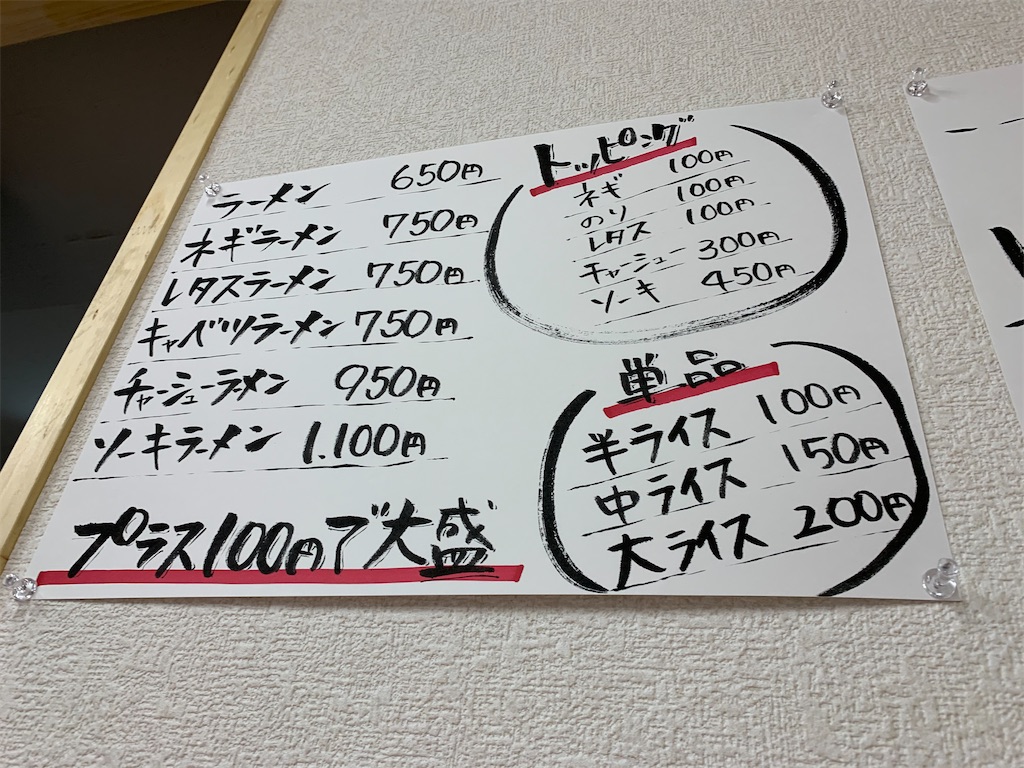 ラーメン 650円
ネギラーメン 750円
レタスラーメン 750円
キャベツラーメン 750円
チャーシューラーメン 950円
ソーキラーメン 1.100円
プラス100円で大盛
トッピング
ネギ 100円
のり 100円
レタス 100円
チャーシュー 300円
ソーキ 450円
単品
半ライス 100円
中ライス 150円
大ライス 200円